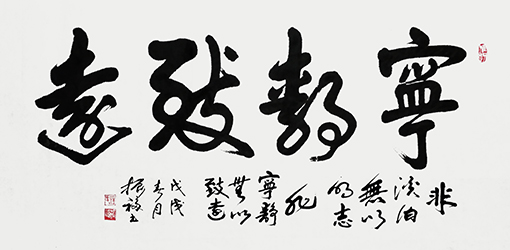 寧靜致遠
非
淡泊
無以
明志
非
寧靜
無以
致遠
戊戌
春月
振福書